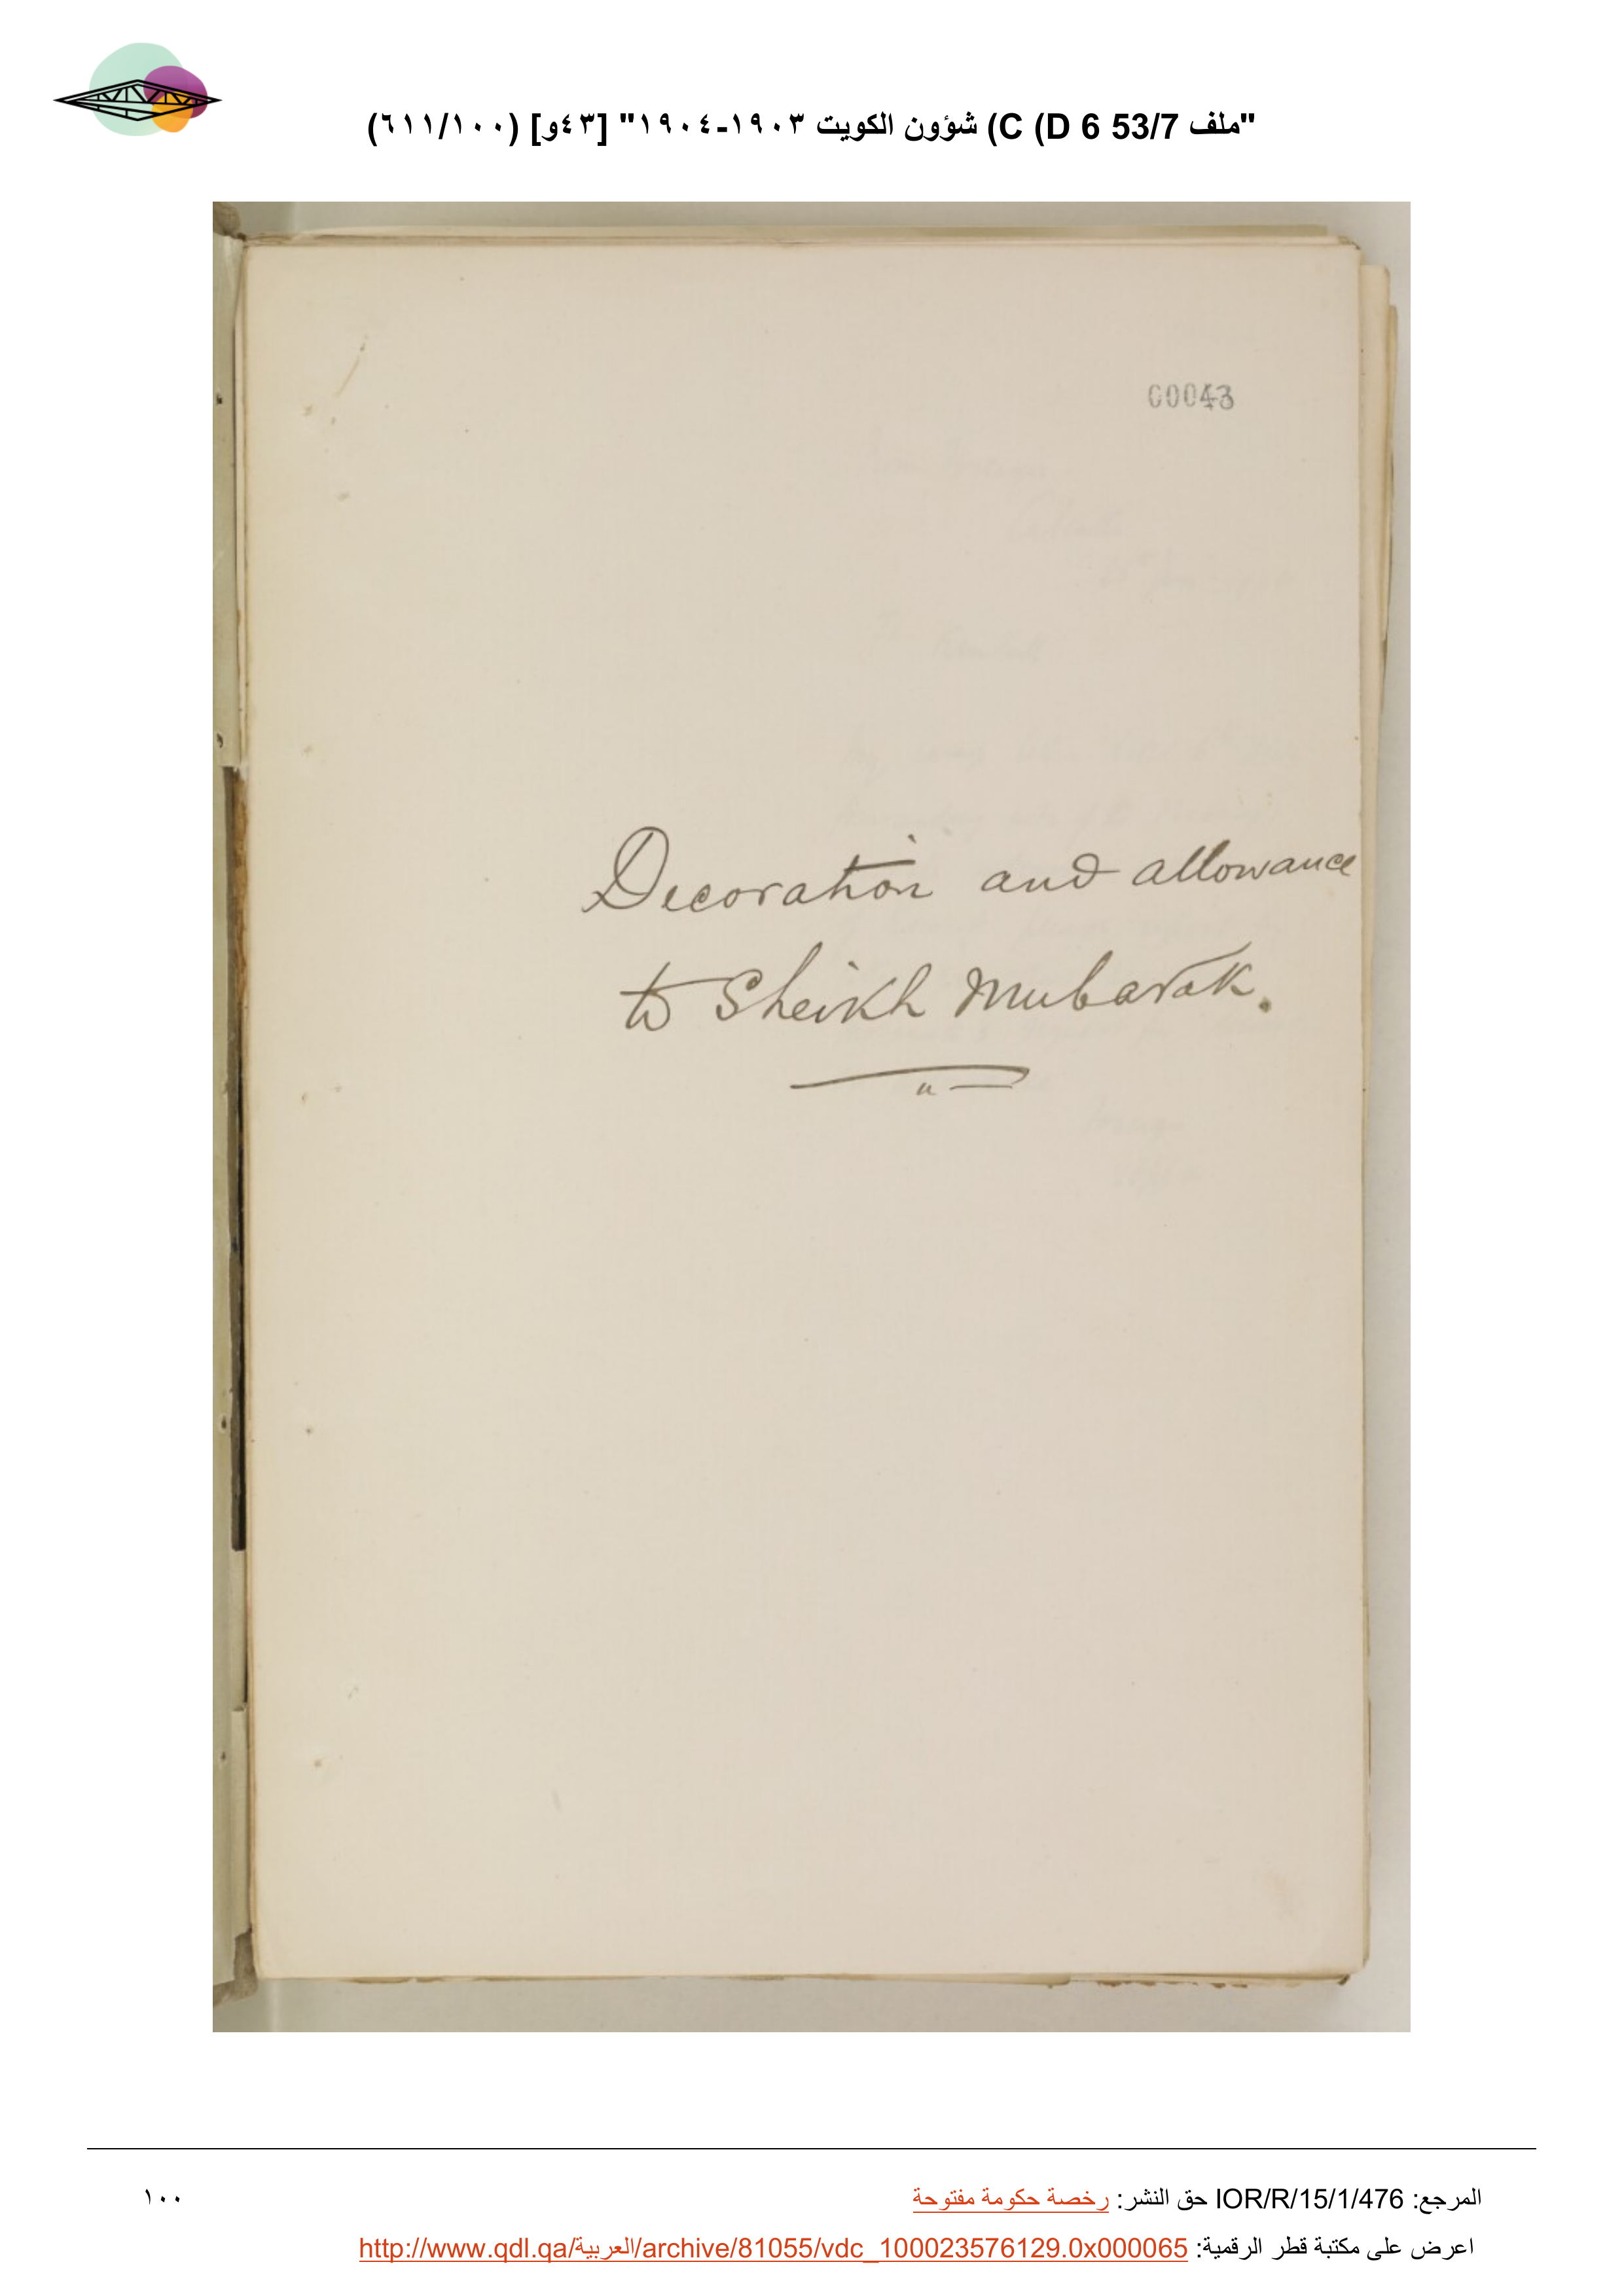 "ملف 53/7 D 6) C) شؤون الكويت ١٩٠٣-١٩٠٤" [٤٣و] (٦١١/١٠٠)
00043
Decoration and allowance
to Sheikh Mubarak.
المرجع: IOR/R/15/1/476 حق النشر: رخصة حكومة مفتوحة
١٠٠
اعرض على مكتبة قطر الرقمية: http://www.qdl.qa/العربية/archive/81055/vdc_100023576129.0x000065